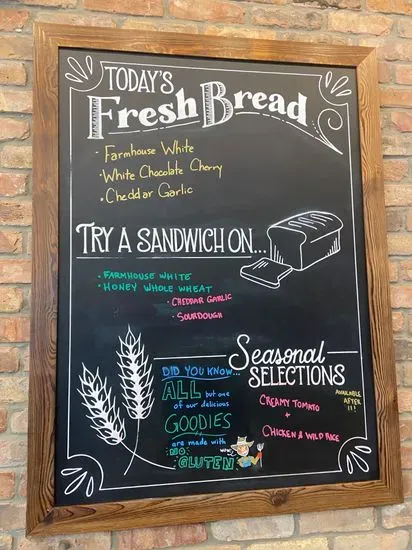 TODAY'S
Fresh Bread
· Farmhouse White
· White Chocolate Cherry
· Cheddar Garlic
TRY A SANDWICH ON...
· FARMHOUSE WHITE
· HONEY WHOLE WHEAT
· CHEDDAR GARLIC
· SOURDOUGH
DID YOU KNOW...
ALL but one
of our delicious
GOODIES
are made with
NO
GLUTEN
WOW!
Seasonal
SELECTIONS
AVAILABLE
AFTER
11!
CREAMY TOMATO
+
CHICKEN & WILD RICE